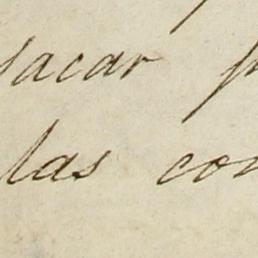 sacar
las con